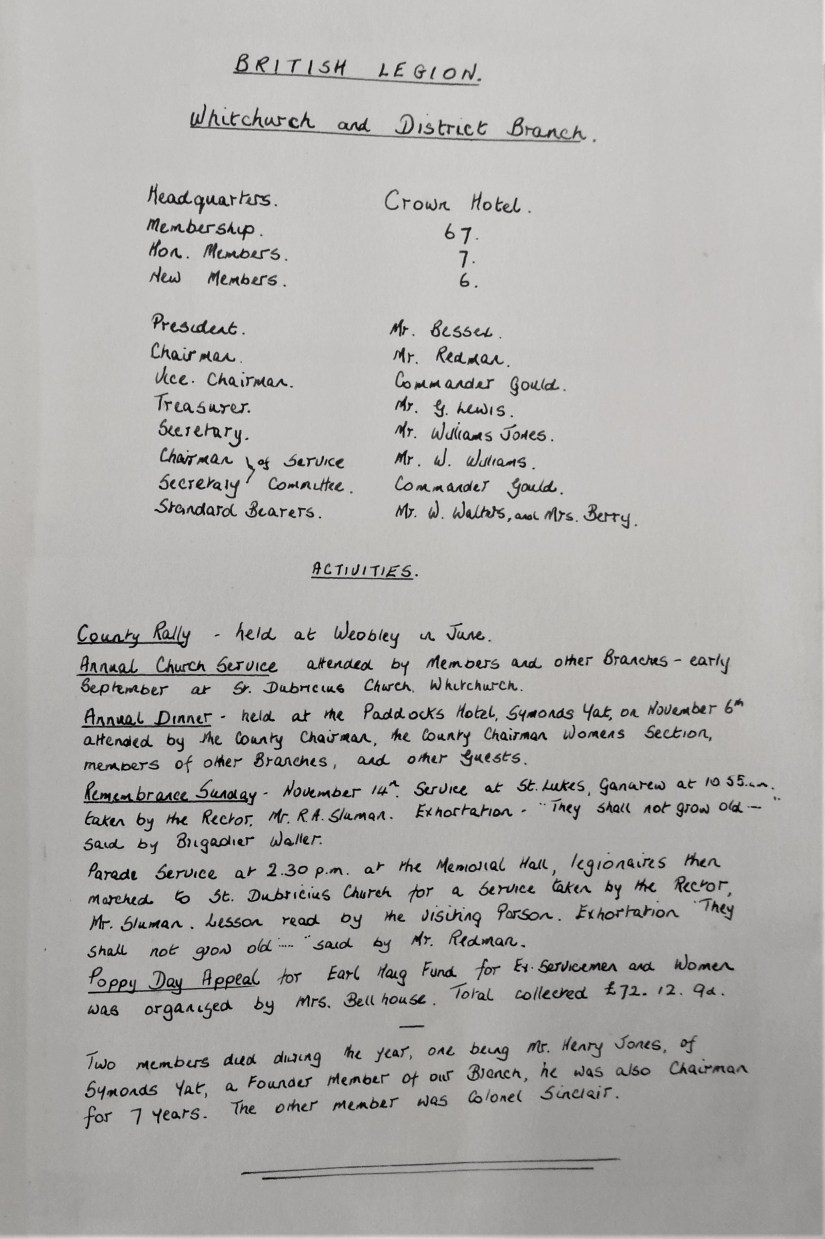 BRITISH LEGION.
Whitchurch and District Branch.
Headquarters. Crown Hotel.
Membership. 67.
Hon. Members. 7.
New Members. 6.
President. Mr. Bessel.
Chairman. Mr. Redman.
Vice. Chairman. Commander Gould.
Treasurer. Mr. G. Lewis.
Secretary. Mr. Williams Jones.
Chairman } of Service Mr. W. Williams.
Secretary } Committee. Commander Gould.
Standard Bearers. Mr. W. Walters, and Mrs. Berry.
ACTIVITIES.
County Rally - held at Weobley in June.
Annual Church Service attended by Members and other Branches - early
September at St. Dubricius Church, Whitchurch.
Annual Dinner - held at the Paddocks Hotel, Symonds Yat, on November 6th
attended by the County Chairman, the County Chairman Womens Section,
members of other Branches, and other Guests.
Remembrance Sunday - November 14th. Service at St. Lukes, Ganarew at 10 55.a.m.
taken by the Rector, Mr. R.A. Sluman. Exhortation - "They shall not grow old — "
said by Brigadier Waller.
Parade Service at 2.30 p.m. at the Memorial Hall, legionaires then
marched to St. Dubricius Church for a Service taken by the Rector,
Mr. Sluman. Lesson read by the Visiting Parson. Exhortation "They
shall not grow old ....." said by Mr. Redman.
Poppy Day Appeal for Earl Haig Fund for Ex-Servicemen and Women
was organised by Mrs. Bellhouse. Total collected £72. 12. 9d.
Two members died during the year, one being Mr. Henry Jones, of
Symonds Yat, a Founder Member of our Branch, he was also Chairman
for 7 years. The other member was Colonel Sinclair.